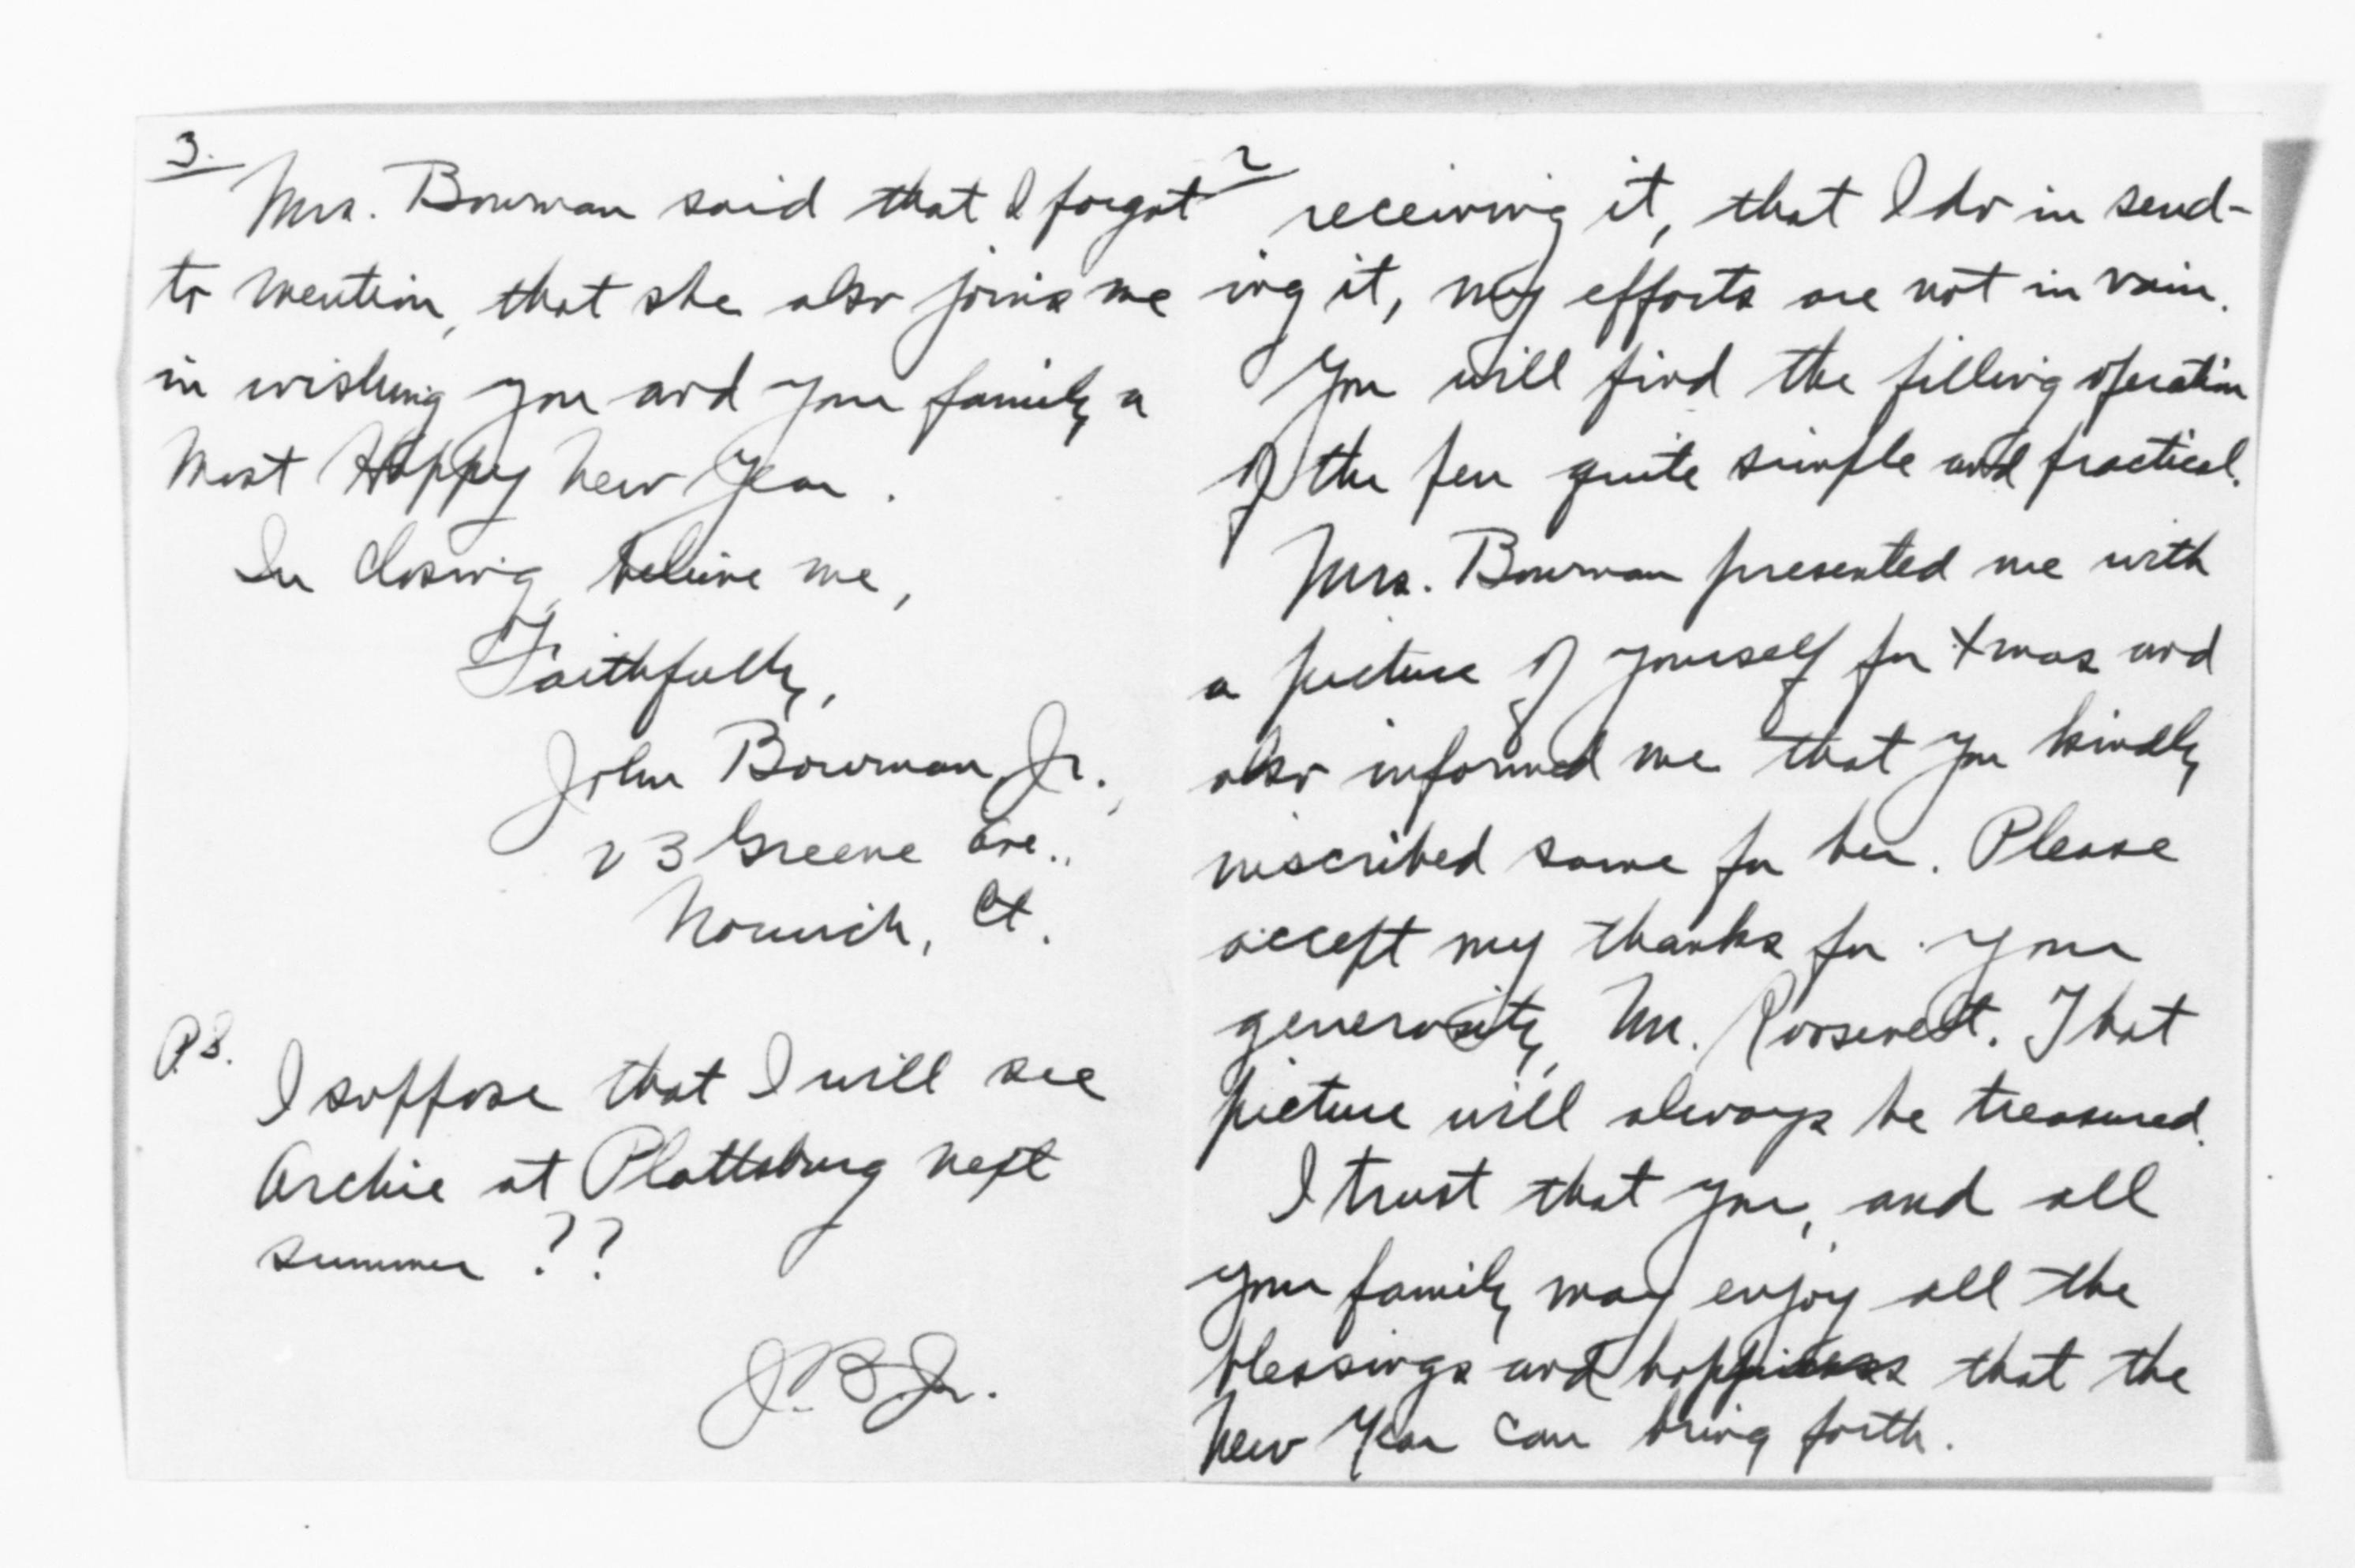 2
receiving it, that I do in send-
ing it, my efforts are not in vain.
You will find the filling operation
of the pen quite simple and practical.
Mrs. Bowman presented me with
a picture of yourself for Xmas and
also informed me that you kindly
inscribed same for her. Please
accept my thanks for your
generosity, Mr. Roosevelt. That
picture will always be treasured.
I trust that you, and all
your family may enjoy all the
blessings and happiness that the
New Year can bring forth.
3.
Mrs. Bowman said that I forgot
to mention, that she also joins me
in wishing you and your family a
Most Happy New Year.
In closing, believe me,
Faithfully,
John Bowman, Jr.,
23 Greene Ave.,
Norwich, Ct.
P.S.
I suppose that I will see
Archie at Plattsburg next
summer ??
J.B. Jr.